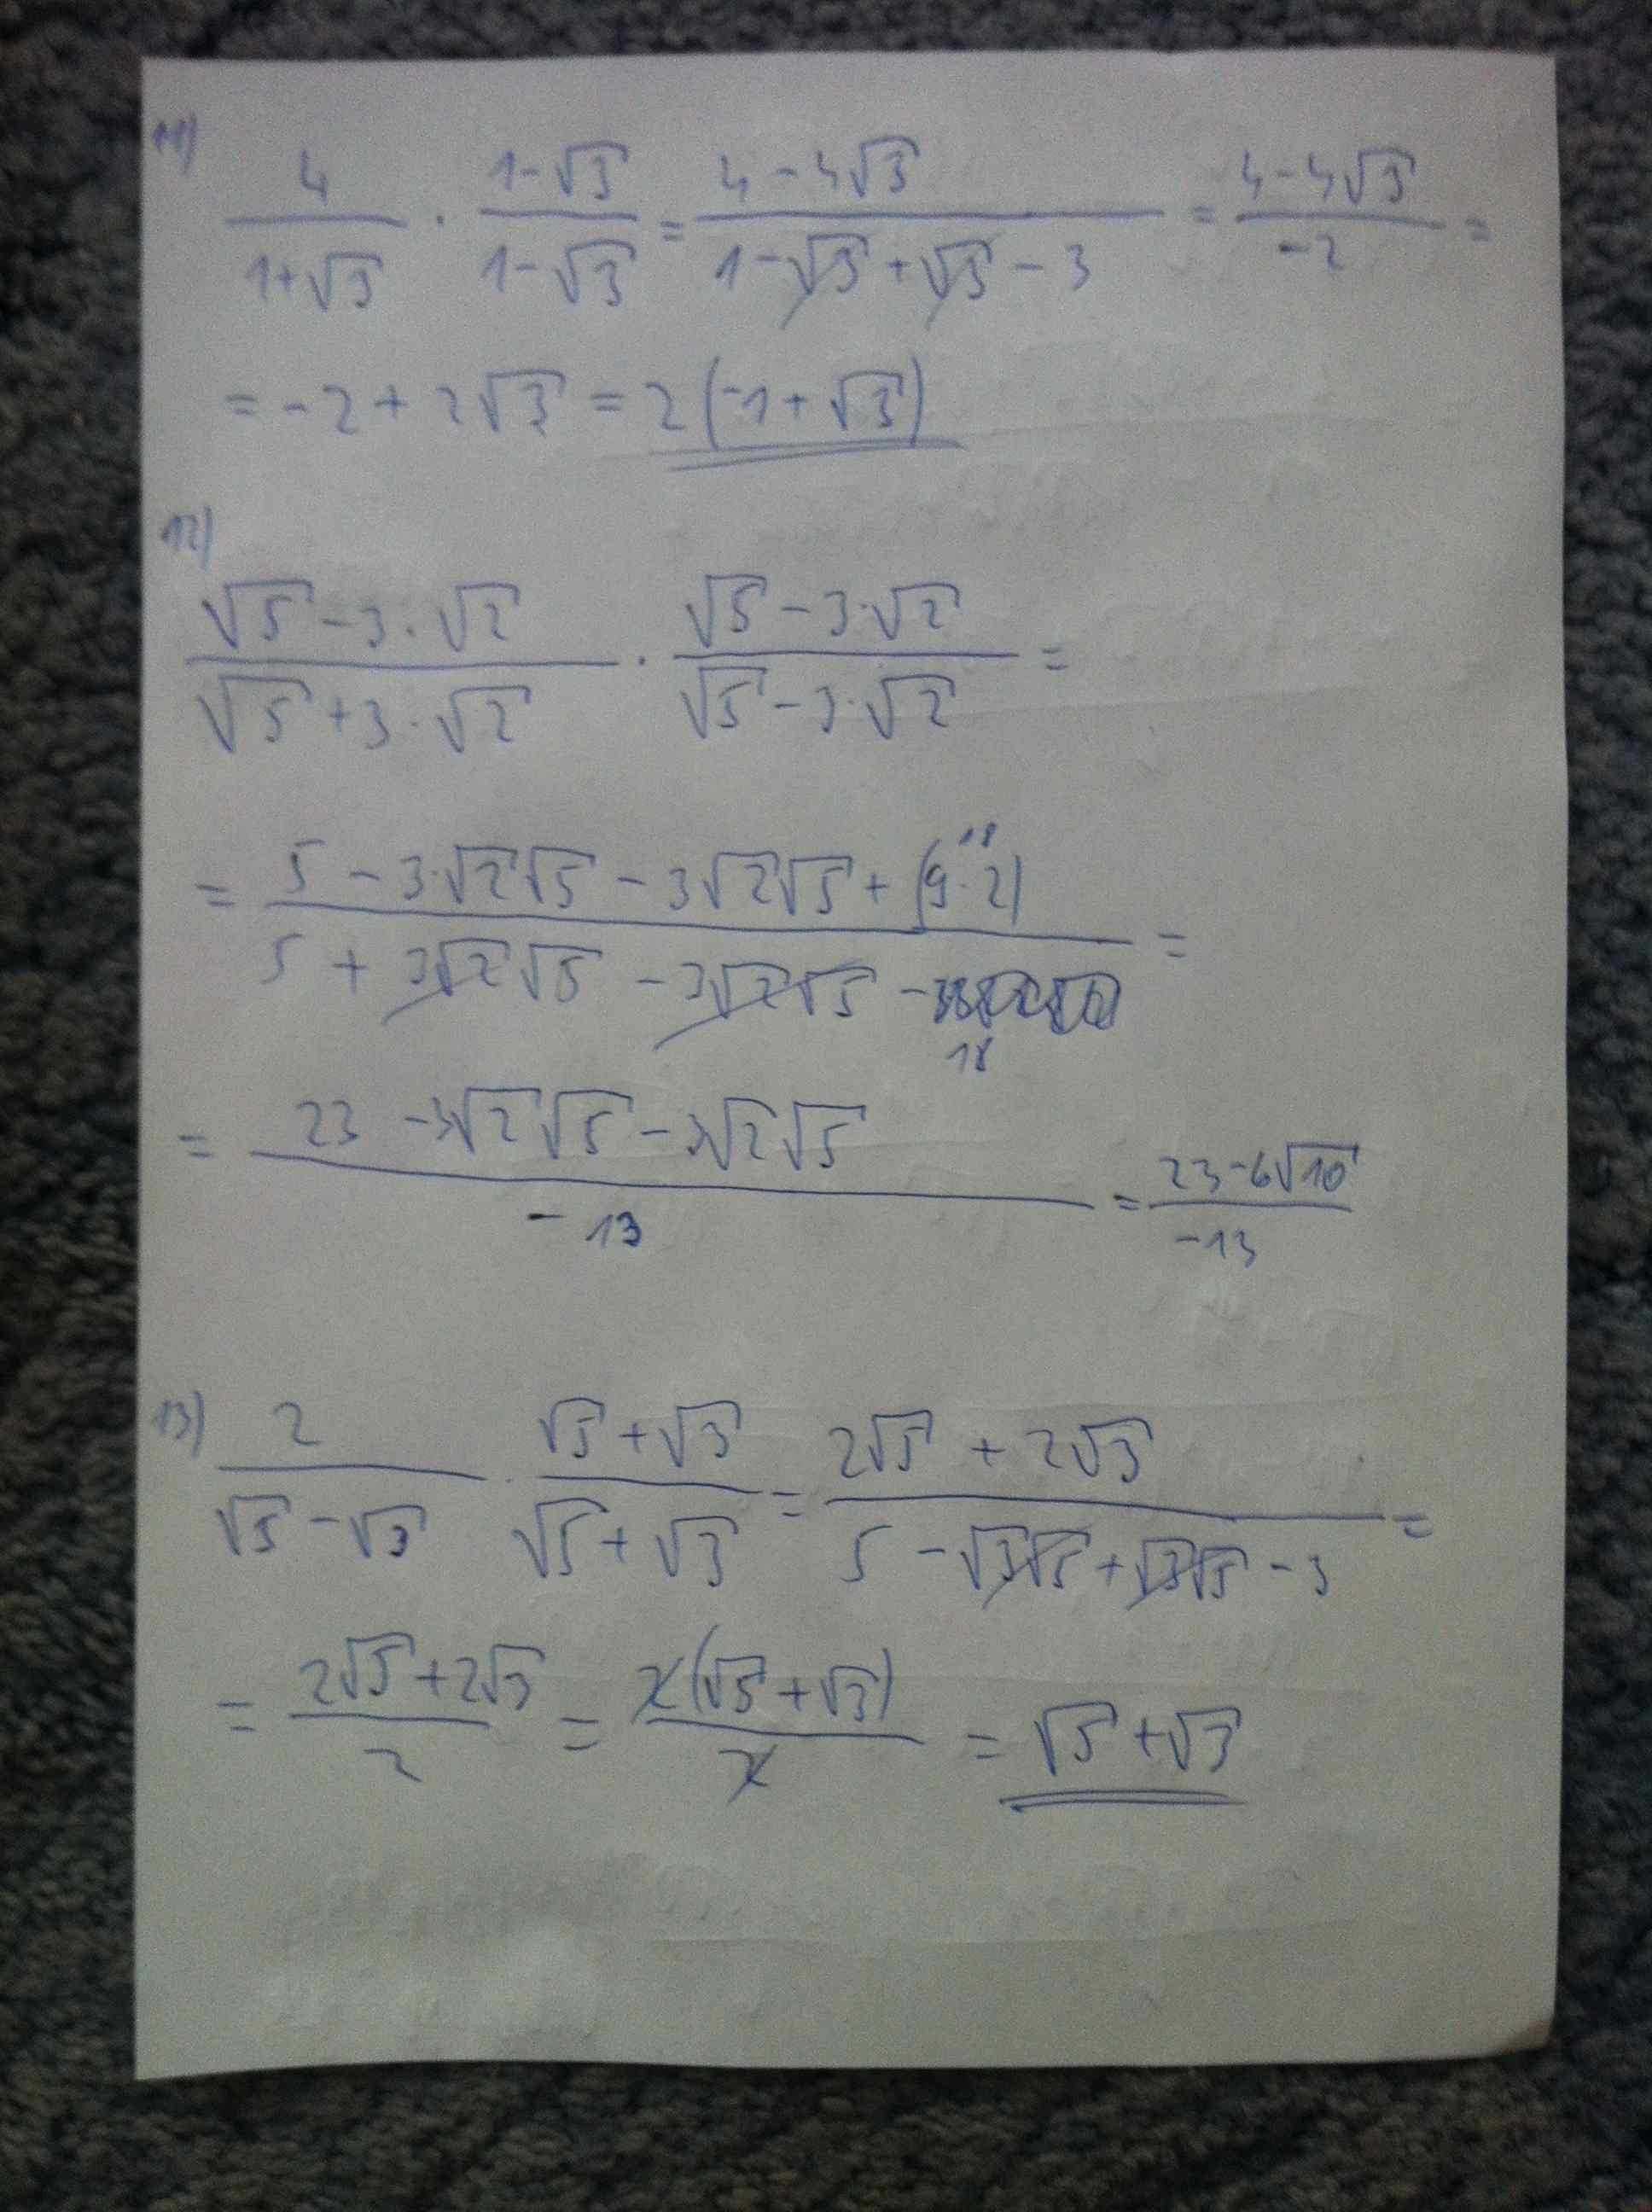 11)
4/(1+√3) · (1-√3)/(1-√3) = (4-4√3)/(1-√3+√3-3) = (4-4√3)/(-2) =
= -2 + 2√3 = 2(-1+√3)
12)
(√5-3·√2)/(√5+3·√2) · (√5-3·√2)/(√5-3·√2) =
= (5-3·√2√5-3√2√5+(9·2) 18)/(5+3√2√5-3√2√5-18) =
= (23-3√2√5-3√2√5)/(-13) = (23-6√10)/(-13)
13) 2/(√5-√3) · (√5+√3)/(√5+√3) = (2√5+2√3)/(5-√3√5+√3√5-3) =
= (2√5+2√3)/2 = 2(√5+√3)/2 = √5+√3